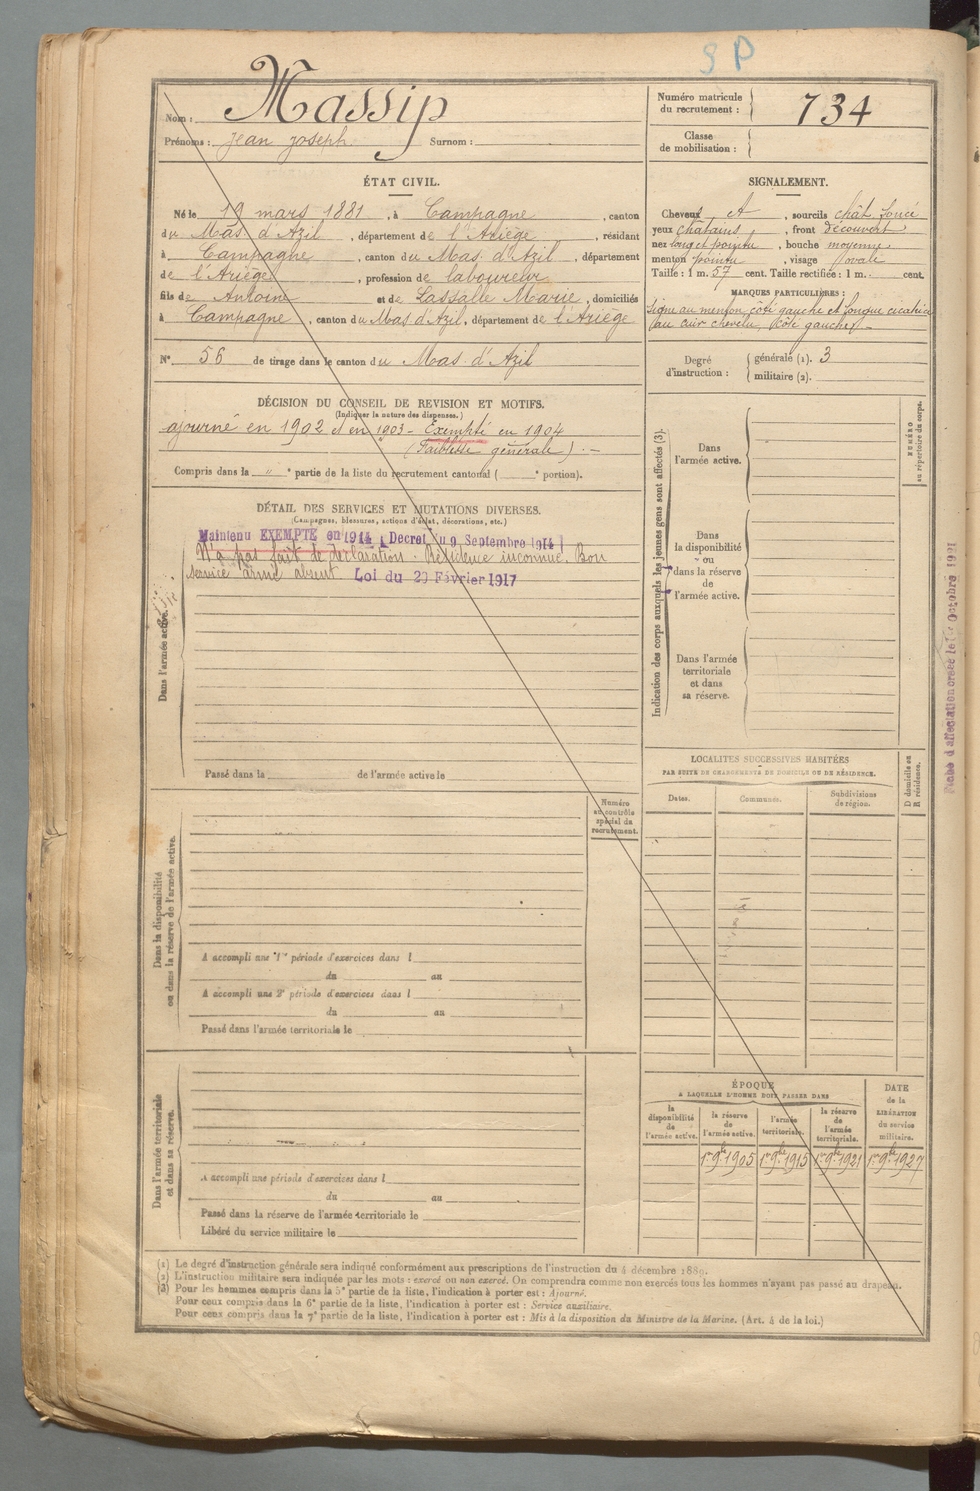 S P
Nom : Massip
Prénoms : Jean Joseph Surnom :
Numéro matricule du recrutement : 734
Classe de mobilisation :
ÉTAT CIVIL.
Né le 19 mars 1881, à Campagne, canton
du Mas d'Azil, département de l'Ariège, résidant
à Campagne, canton du Mas d'Azil, département
de l'Ariège, profession de laboureur
fils de Antoine et de Lassalle Marie, domiciliés
à Campagne, canton du Mas d'Azil, département de l'Ariège
N° 56 de tirage dans le canton du Mas d'Azil
SIGNALEMENT.
Cheveux et, sourcils chât. foncé
yeux chatains, front découvert
nez long et pointu, bouche moyenne
menton pointu, visage ovale
Taille : 1 m. 57 cent. Taille rectifiée : 1 m. cent.
MARQUES PARTICULIÈRES :
Signe au menton, côté gauche et longue cicatrice
au cuir chevelu, (côté gauche). –
Degré d'instruction : générale (1). 3
militaire (2).
DÉCISION DU CONSEIL DE REVISION ET MOTIFS.
(Indiquer la nature des dispenses.)
ajourné en 1902 et en 1903 – Exempté en 1904
(Faiblesse générale) . –
Compris dans la " e partie de la liste du recrutement cantonal ( e portion).
DÉTAIL DES SERVICES ET MUTATIONS DIVERSES.
(Campagnes, blessures, actions d'éclat, décorations, etc.)
Maintenu EXEMPTÉ en 1914 (Decret du 9 Septembre 1914)
N'a pas fait de déclaration. Résidence inconnue. Bon
service armé absent. Loi du 20 Février 1917
Dans l'armée active.
Passé dans la de l'armée active le
Numéro au contrôle spécial du recrutement.
Dans la disponibilité
ou dans la réserve de l'armée active.
A accompli une 1re période d'exercices dans l
du au
A accompli une 2e période d'exercices dans l
du au
Passé dans l'armée territoriale le
Dans l'armée territoriale
et dans sa réserve.
A accompli une période d'exercices dans l
du au
Passé dans la réserve de l'armée territoriale le
Libéré du service militaire le
Indication des corps auxquels les jeunes gens sont affectés (3).
Dans
l'armée active.
Dans
la disponibilité
ou
dans la réserve
de
l'armée active.
Dans l'armée
territoriale
et dans
sa réserve.
NUMÉRO
au répertoire du corps.
LOCALITÉS SUCCESSIVES HABITÉES
PAR SUITE DE CHANGEMENTS DE DOMICILE OU DE RÉSIDENCE.
Dates.
Communes.
Subdivisions
de région.
D domicile ou
R résidence.
ÉPOQUE
A LAQUELLE L'HOMME DOIT PASSER DANS
la disponibilité de l'armée active.
la réserve de l'armée active.
l'armée territoriale.
la réserve de l'armée territoriale.
DATE de la LIBÉRATION du service militaire.
1er 9bre 1905 1er 9bre 1915 1er 9bre 1921 1er 9bre 1927
(1) Le degré d'instruction générale sera indiqué conformément aux prescriptions de l'instruction du 4 décembre 1889.
(2) L'instruction militaire sera indiquée par les mots : exercé ou non exercé. On comprendra comme non exercés tous les hommes n'ayant pas passé au drapeau.
(3) Pour les hommes compris dans la 5e partie de la liste, l'indication à porter est : Ajourné.
Pour ceux compris dans la 6e partie de la liste, l'indication à porter est : Service auxiliaire.
Pour ceux compris dans la 7e partie de la liste, l'indication à porter est : Mis à la disposition du Ministre de la Marine. (Art. 4 de la loi.)
d'affectation créée le 1er Octobre 1921